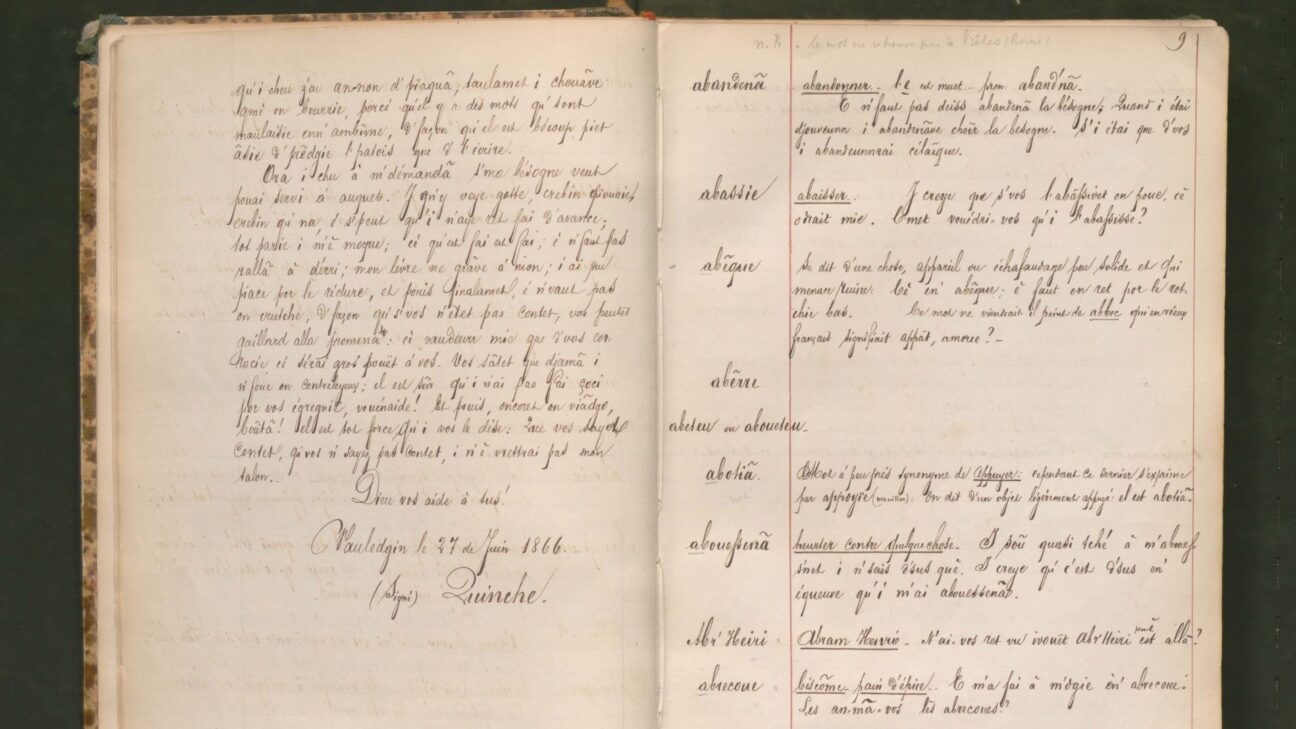 qu'i cheu j'ai an-non d'piaquâ, taulamet i chouâve
on bourrie, porcé qu'el y a des mots qu'sont
maulaisie enn'ambûrne, d'façon qu'el est bécoup piet
âsie d'prèdgie l'patois que d'l'ècrire.
Ora i chu à m'démandâ s'ma bésogne veut
pouai servi à auquet. I gn'y veye gotte, crebin
crebin qu'na, è s'peut qu'i n'aye ret fai d'avance.
tot parie i n'è moque; cè qu'est fai est fai; è n'faut pas
rallâ à derri; mon livre ne grâve à nion; i ai pru
piace por le rédure, et pouis finalamet, è n'vaut pas
on crutche, d'façon qu's'vos n'étet pas contet, vos peutet
gaillard alla promenâ: cè vaudeurr mie que d'vos cor
rocie et sèrâs gros pouët à vos. Vos sâtet que djamâ i
n'foue on contreleyeux; el est sûr qu'i n'ai pas fai çoci
por vos égregnie, vouènaide! Et pouis, encoret on viâdge,
boûtâ! el est tot force qu'i vos le dise: Que vos sayet
contet, qu'vos n'sayet pas contet, i n'è vrettrai pas mon
talon..
Dieu vos aide à tus!
Vauledgin le 27 de Juin 1866
(Signé) Quinche.
n. B. - le mot ne se trouve pas à Prêles (Berne)
9
abandenâ abandonner. l'e est muet. pron. aband'nâ.
E n'faut pas deiss abandenâ la bésogne; Quand i étai
djouveunn i abandenâve choîr la besogne. S'i étai que d'vos
i abandeunnrai célaîque.
abassie abaisser. I creye que s'vos l'abâssivet on poue, cè
odrait mie. Omet vouédri-vos qu'i l'abassisse?
abêgue Se dit d'une chose, appareil ou échafaudage peu solide et qui
menace ruine: C'è en' abêgue; è faut en ret por le rot-
chie bas. Ce mot ne viendrait il point de abbec qui en vieux
français signifiait appât, amorce? -
abêrre
abeteu ou aboueteu.
abotiâ. Mot à peu près synonyme de appuyer: cependant ce dernier s'exprime
par appoyie (mouiller). On dit d'un objet légèrement appuyé il est abotiâ.
abouessenâ heurter contre quelque chose. I soû quasi tché à m'aboues-
s'net i n'sais d'sus què. I creye qu'c'est d'sus en'
équeuve qu'i m'ai abouessenâ.
Abr' Heiri Abram Henri. N'ai-vos ret vu ivouët Abr'Heiri est allâ?
abrecoue biscôme, pain d'épice. E m'a fai à m'dgie èn' abrecoue.
Les an-mâ-vos lès abrecoues?